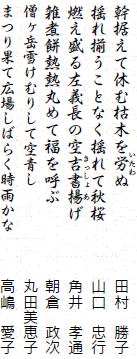 幹据えて休む枯木を労ぬ 田村 勝子
いたわ
揺れ揃うことなく揺れて秋桜 山口 忠行
燃え盛る左義長の空吉書揚げ 角井 孝通
きっしょあ
雑煮餅熱熱丸めて福を呼ぶ 朝倉 政次
僧ヶ岳雪けむりして空青し 丸田美恵子
まつり果て広場しばらく時雨かな 高嶋 愛子